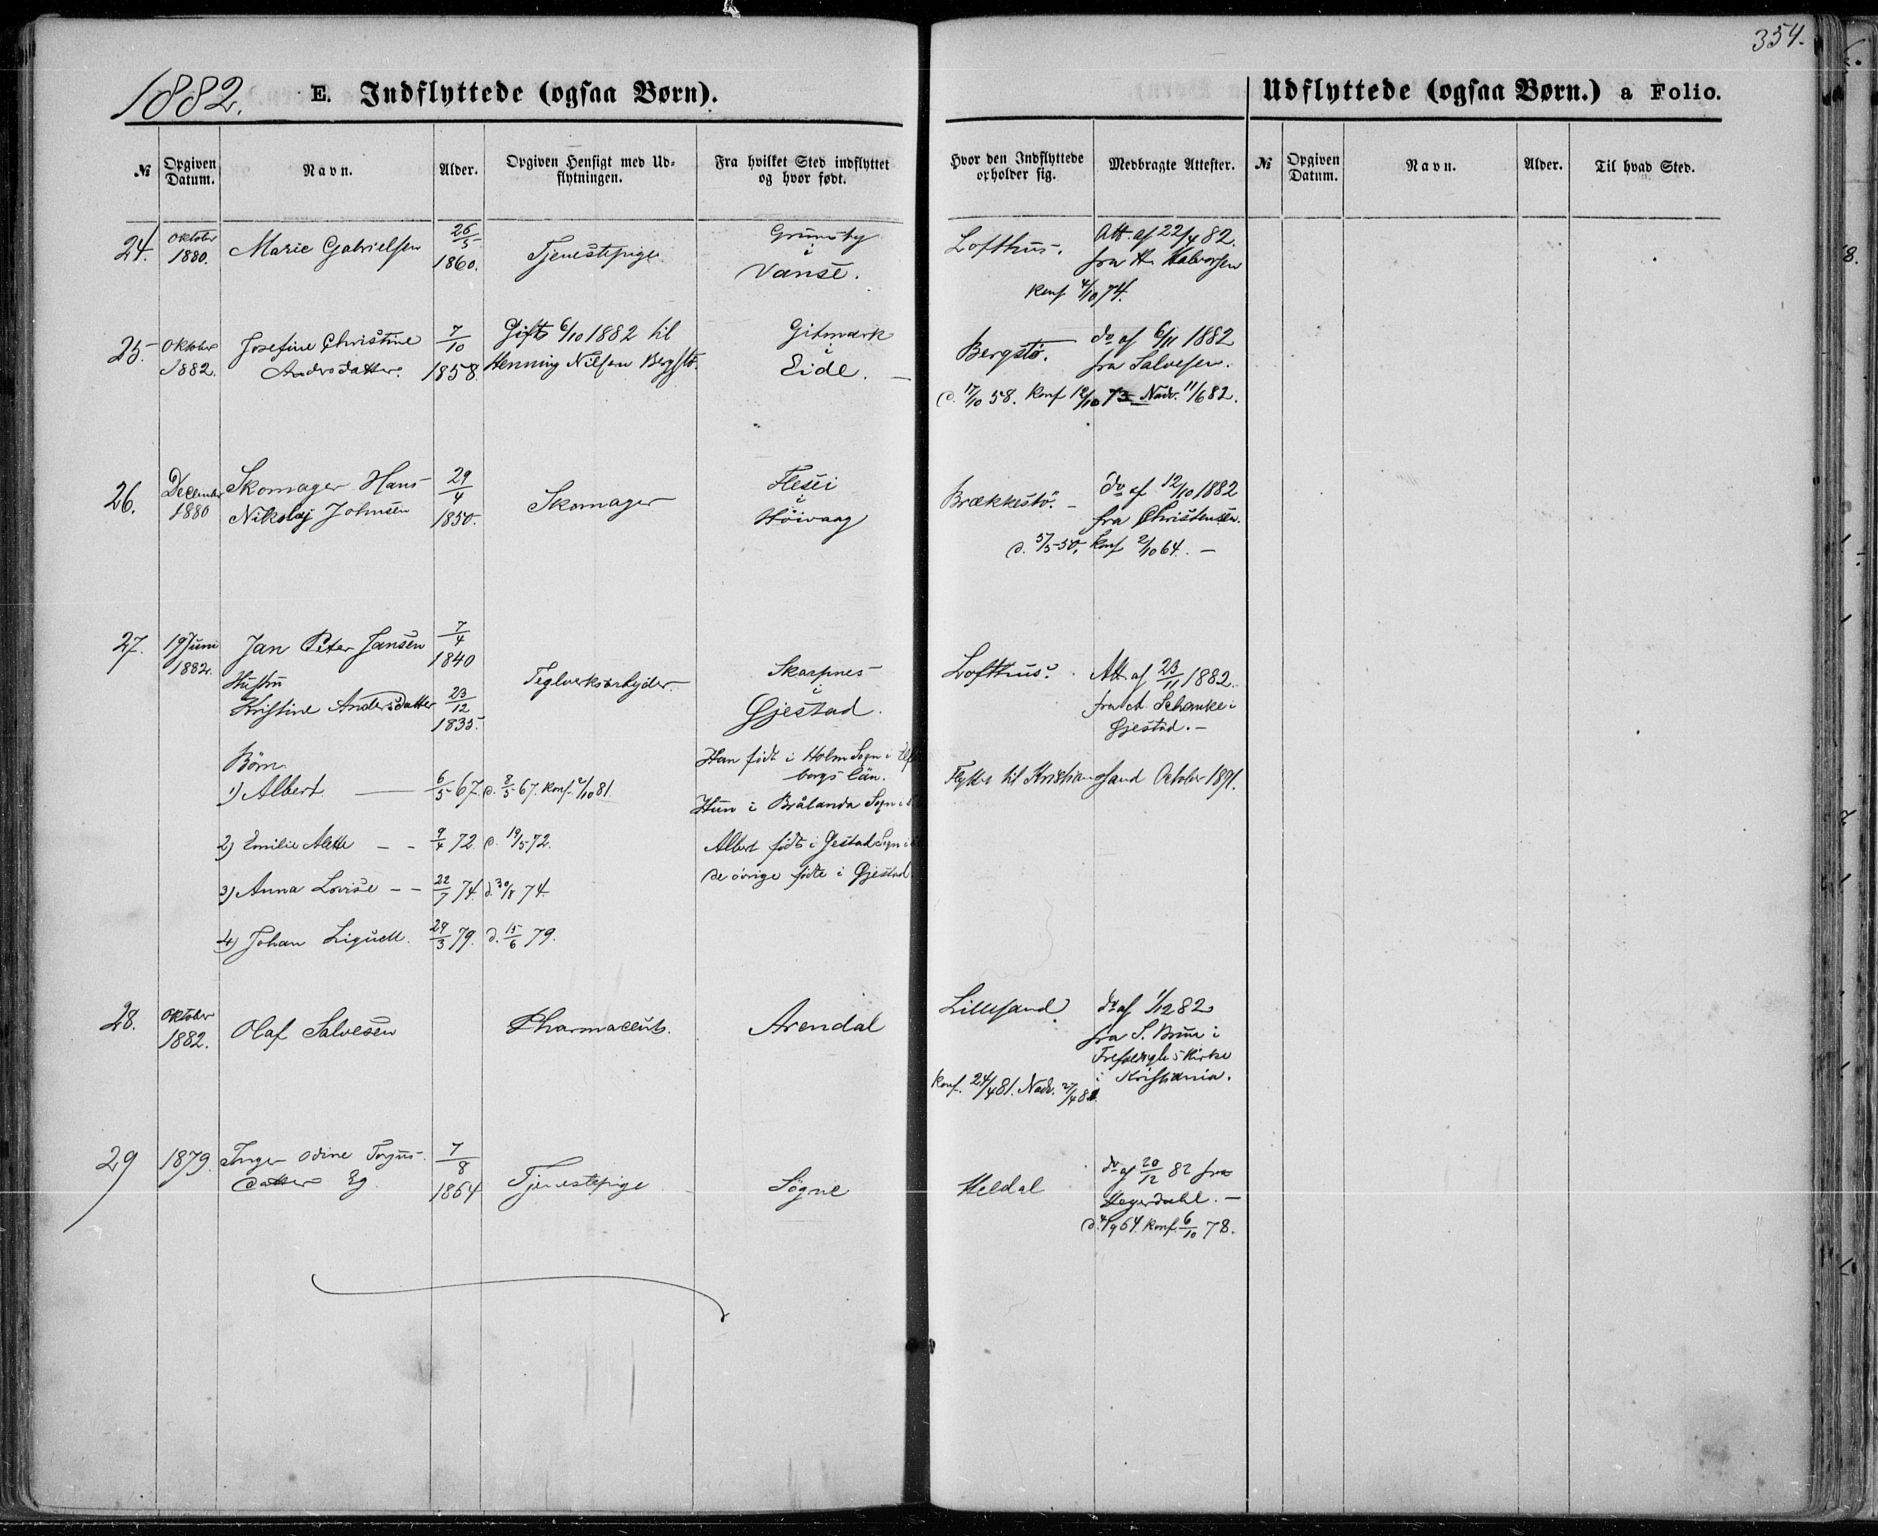 354.
1882.
E. Indflyttede (ogsaa Børn).
Udflyttede (ogsaa Børn.) a Folio.
№ Opgiven Datum. Navn. Alder. Opgiven Hensigt med Udflytningen. Fra hvilket Sted indflyttet og hvor født. Hvor den Indflyttede opholder sig. Medbragte Attester. № Opgiven Datum. Navn. Alder. Til hvad Sted.
24. Oktober 1880. Marie Gabrielsen 26/5 1860. Tjenestepige Grunsby i Vanse. Lofthus. Att. af 22/4 82. fra H. Halvorsen
Konf 4/10 74.
25. Oktober 1882. Josefine Christine Andersdatter. 7/10 1858. Gift 6/10 1882 til Henning Nilsen Bergstø. Gitmark i Eide. Bergstø. do af 6/11 1882 fra Salvesen.
d. 17/10 58. Konf 12/10 73 Nadv. 11/6 82.
26. December 1880 Skomager Hans Nikolaj Johnsen 29/4 1850. Skomager Flesei i Høivaag Brækkestø. do af 12/10 1882 fra Christensen.
d. 5/5 50, Konf 2/10 64.
27. 19 Juni 1882. Jan Peter Jansen 7/4 1840 Teglverksarbejder. Skarpnes i Gjestad. Lofthus. Att af 23/11 1882. fra A. Schanke i Gjestad.
Hustru Kristine Andersdatter 23/12 1835.
Børn.
Han født i Holm Sogn i
borgs län.
1) Albert 6/5 67. d. 8/5 67. Konf. 2/10 81. Flyttet til Kristiansand October 1891.
Hun i Brålanda Sogn i
2) Emilie Alette 9/4 72. d. 19/5 72. Albert født i Gestad Sogn i
3) Anna Lovise 22/7 74. d. 30/8 74. De øvrige fødte i Gjestad
4) Johan 29/3 79. d. 15/6 79.
28. Oktober 1882. Olaf Salvesen Pharmaceut. Arendal Lillesand do af 1/12 82 fra S. Brun i Kirke i Kristiania.
Konf. 24/4 81. Nadv. 27/4 82.
29 1879. Inger Odine Torjusdatter Eg 7/8 1864 Tjenestepige Søgne Heldal do af 20/12 82 fra Heyerdahl.
d. 4/9 64. Konf. 6/10 78.